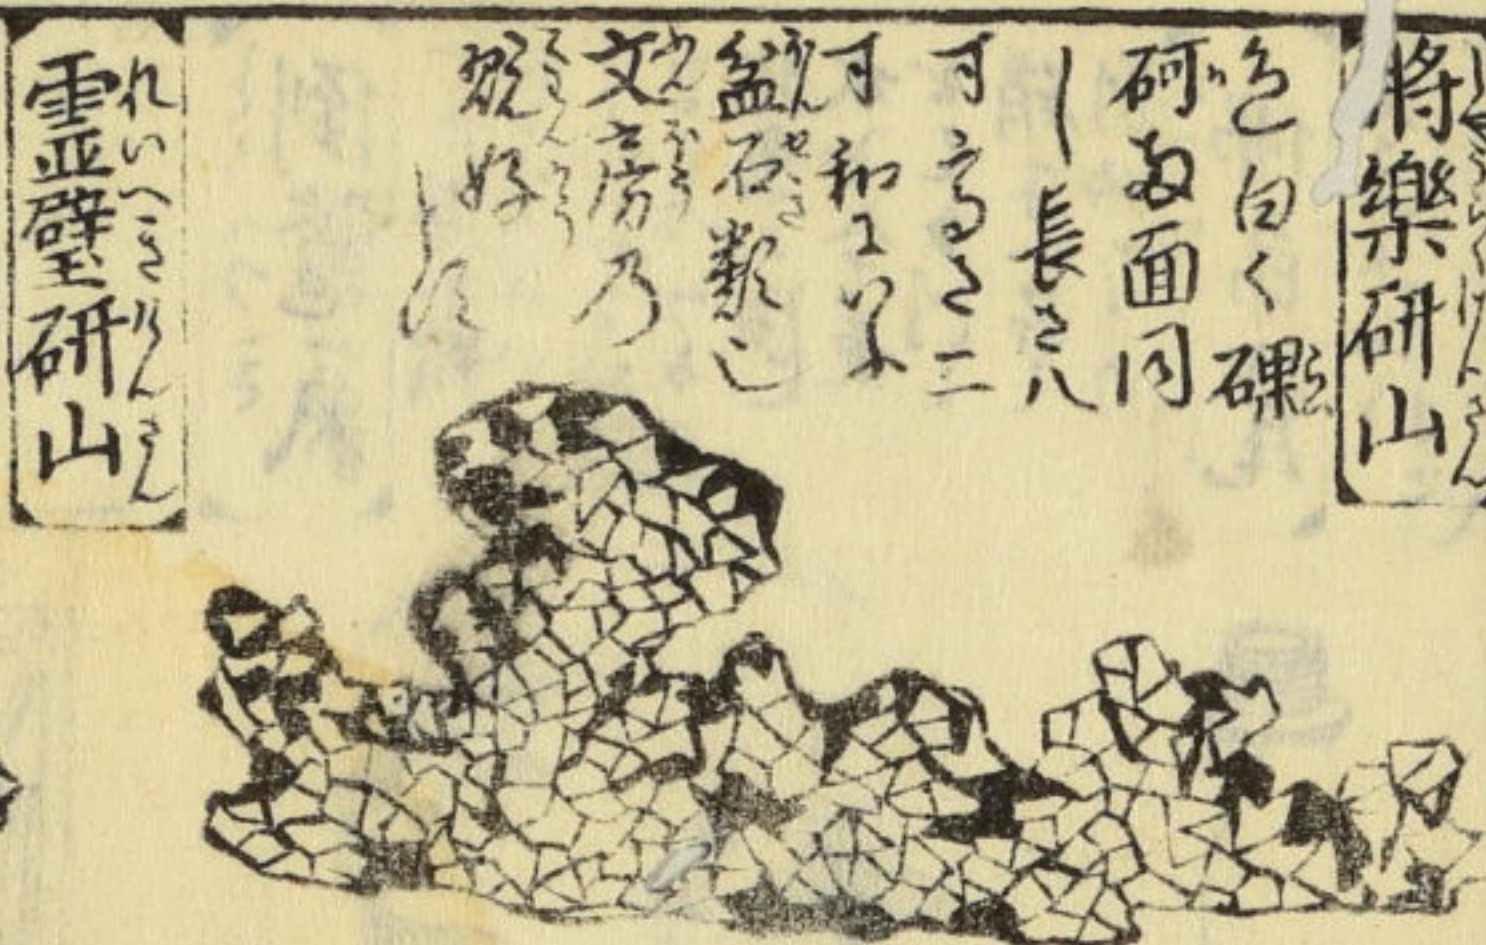 將樂研山
しやうらくけんさん
色白く磥
砢両面同
し長さ八
寸高さ二
寸和にいふ
盆石類也
文房乃
翫好
とす
霊壁研山
れいへきけんさん